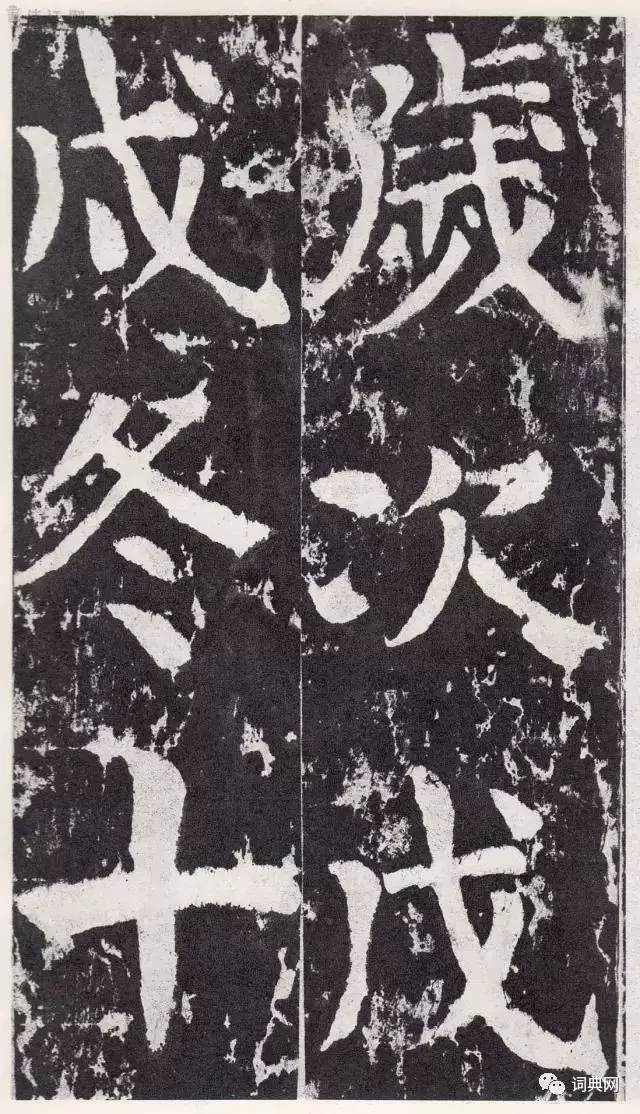 歲次戊
戌冬十
词典网